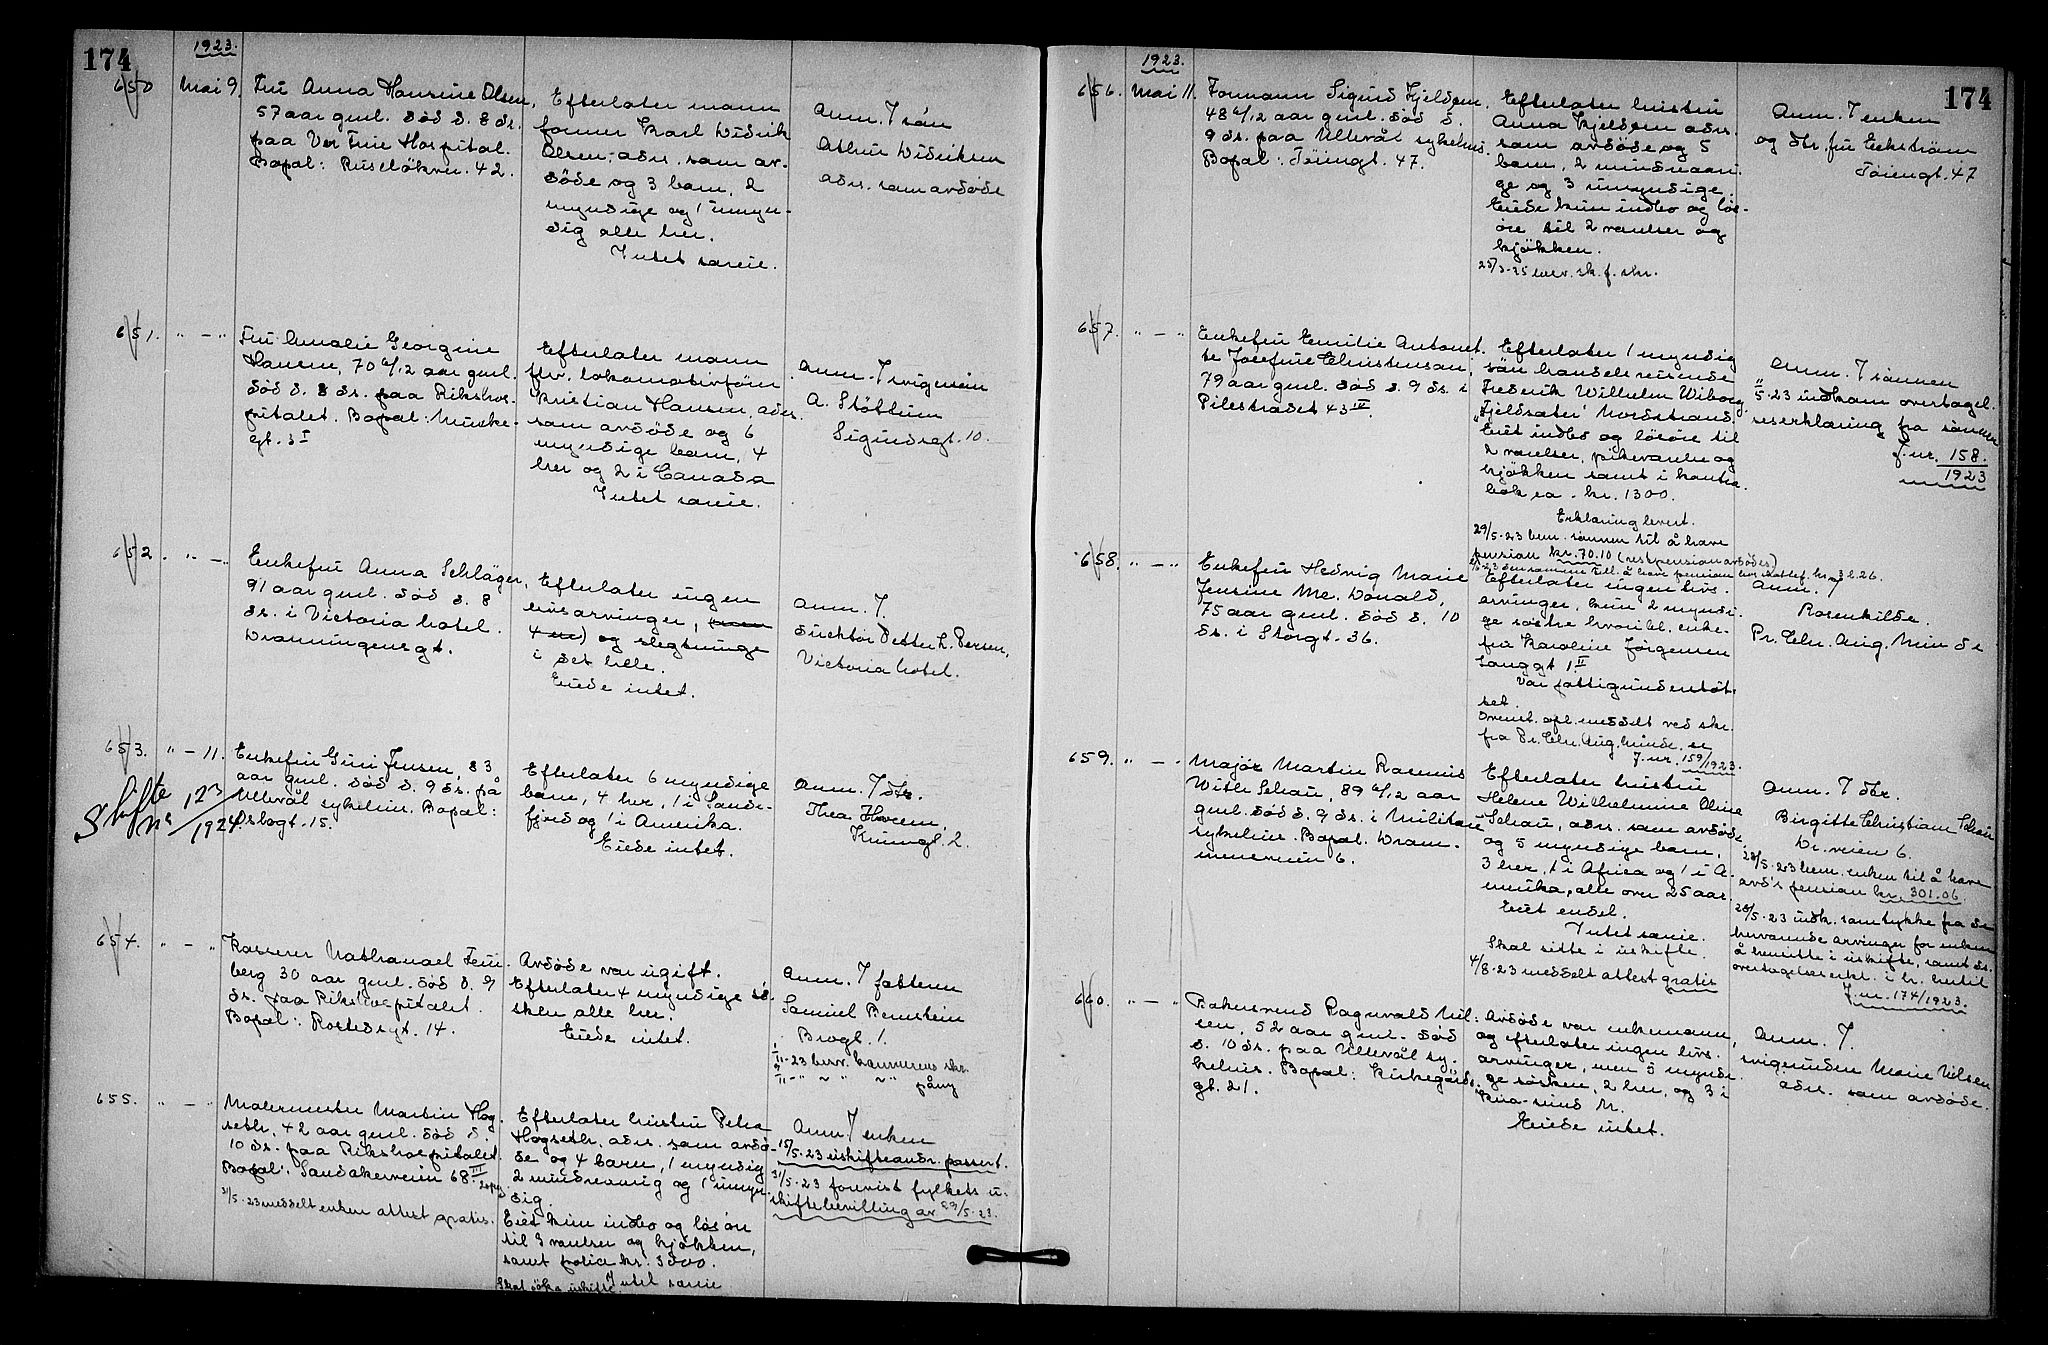 174
1923.
650
Mai 9.
Fru Anna Hansine Olsen,
57 aar gml. død d. 8 ds.
paa Vor Frue Hospital.
Bopæl: Ruseløkvn. 42.
Efterlater mann
former Karl Widrik
Olsen, adr. som av-
døde og 3 barn, 2
myndige og 1 umyn-
dig alle her.
Intet særeie.
Anm. I søn
Athur Widriksen
adr. som avdøde
651.
" — "
Fru Amalie Georgine
Hansen, 70 6/12 aar gml.
død d. 8 ds. paa Rikshos-
pitalet. Bopæl: Muncke-
gt. 3 I
Efterlater mann
fhv. lokomotivfører
Kristian Hansen, adr.
som avdøde og 6
myndige barn, 4
her og 2 i Canada
Intet særeie.
Anm. I svigersøn
A. Støttum
Sigurdsgt. 10.
652.
" — "
Enkefru Anna Schläger,
91 aar gml. død d. 8
ds. i Victoria hotel.
Dronningensgt.
Efterlater ingen
livsarvinger,
og slegtninge
i det hele.
Eiede intet.
Anm. I.
direktør Petter L. Persen,
Victoria hotel.
653.
" — 11.
Enkefru Guri Jensen, 83
aar gml. død d. 9 ds. på
Ullevål sykehus. Bopæl:
Oslogt. 15.
Skifte
nr 123/1924
Efterlater 6 myndige
barn, 4 her, 1 i Sande-
fjord og 1 i Amerika.
Eiede intet.
Anm. I dtr.
Thea
2.
654.
" — "
Kasserer Nathanael Fein-
berg 30 aar gml. død d. 9
ds. paa Rikshospitalet.
Bopæl: Rostedsgt. 14.
Avdøde var ugift.
Efterlater 4 myndige sø-
sken alle her.
Eiede intet.
Anm. I fetteren
Samuel Bernstein
Brogt. 1.
655.
" — "
Malermester Martin Hog-
seth, 42 aar gml. død d.
10 ds. paa Rikshospitalet.
Bopæl: Sandakerveien 68 III
31/5-23 meddelt enken attest gratis.
Efterlater hustru Petra
Hogseth. adr. som avdø-
de og 4 barn, 1 myndig
2 mindreaarig og 1 umyn-
dig.
Eiet kun indbo og løsøre
til 3 værelser og kjøkken,
samt police kr. 3000.
Intet særeie
Skal søke uskifte.
Anm. I enken
15/5-23 uskifteandr. passert.
31/5-23 forevist fylkets u-
skiftebevilling av 29/5-23.
174
1923.
656.
Mai 11.
Formann Sigurd Kjeldsen.
48 6/12 aar gml. død d.
9 ds. paa Ullevål sykehus.
Bopæl: Tøiengt. 47.
Efterlater hustru
Anna Kjeldsen adr.
som avdøde og 5
barn, 2 mindreaari-
ge og 3 umyndige.
Eiede kun indbo og løs-
øre til 2 værelser og
kjøkken.
Anm. I enken
og dtr. fru Eckstrøm
Tøiengt. 47
657.
" — "
Enkefru Emilie Antonet-
te Josefine Christensen,
79 aar gml. død d. 9 ds. i
Pilestrædet 43 IV.
Efterlater 1 myndig
søn handelsreisende
Frederik Wilhelm Wiborg
"Fjeldsæter" Nordstrand.
Eiet indbo og løsøre til
2 værelser, pikeværelse og
kjøkken samt i kontra-
bok ca. kr. 1300.
Erklæring levert.
29/5-23 bem. sønnen til å hæve
pension kr. 70.10 (restpension avdødes)
Anm. I sønnen
11/5-23 indkom overtagel-
seserklæring fra sønnen
J.nr. 158/1923
658.
" — "
Enkefru Hedvig Marie
Jensine Mc. Donald,
75 aar gml. død d. 10
ds. i Storgt. 36.
Efterlater ingen livs-
arvinger, kun 2 myndi-
ge søstre hvoribl. enke-
fru Karoline Jørgensen
Langgt 1 II
Var fattigunderstøt-
tet.
fra Pr. Chr. Aug. Minde, er
J.nr. 159/1923.
Anm. I
Rosenkilde.
Pr. Chr. Aug. Minde
659.
" — "
Major Martin Rasmus
With Schou, 89 6/12 aar
gml. død d. 9 ds. i Militære
sykehus. Bopæl: Dram-
mensveien 6.
Efterlater hustru
Helene Wilhelmine Oline
Schou, adr. som avdøde
og 5 myndige barn,
3 her, 1 i Africa og 1 i A-
merika, alle over 25 aar.
Eiet endel.
Intet særeie.
Skal sitte i uskifte.
4/8-23 meddelt attest gratis
Anm. I dtr.
Birgitte Christiane Schou
Dr. veien 6.
28/5-23 bem. enken til å hæve
avd's pension kr. 301.06.
28/5-23 indk. samtykke fra de
herværende arvinger for enken
å hensitte i uskifte, samt ds.
overtagelseserkl.
J.nr. 174/1923.
660.
" — "
Bakersvend Ragnvald Nil-
sen, 52 aar gml. død
d. 10 ds. paa Ullevål sy-
kehus. Bopæl: Kirkegårds-
gt. 21.
Avdøde var enkemann,
og efterlater ingen livs-
arvinger, men 5 myndi-
ge søsken, 2 her, og 3 i
Kristiansund N.
Eiede intet.
Anm. I.
svigerinden Marie Nilsen
adr. som avdøde.